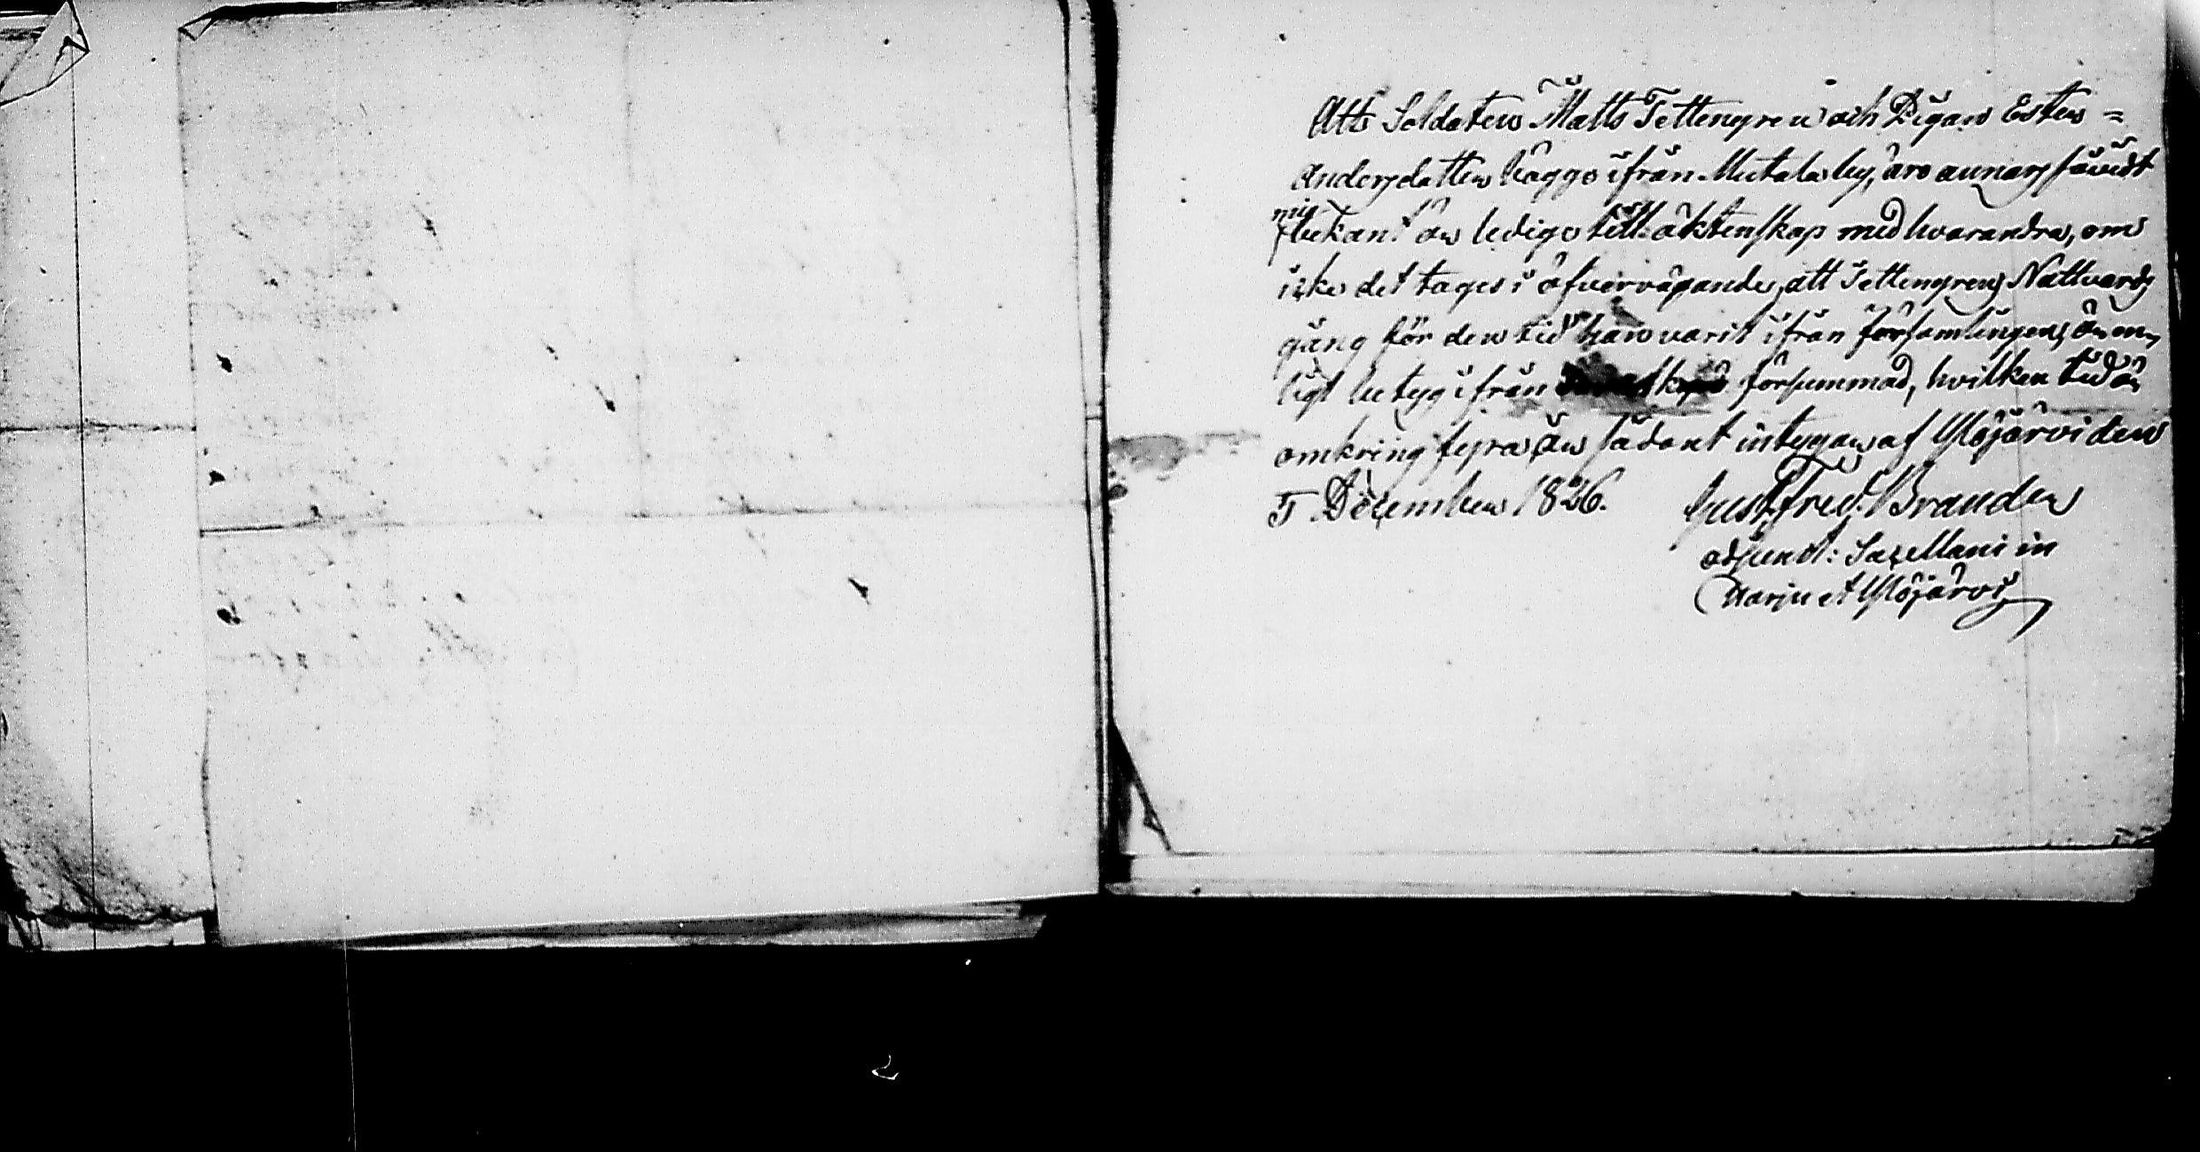 Att Soldaten Matts Tettengren och Pigan Ester =
Andersdotter bägge ifrån Mutala by, äro annars såvidt
mig bekant är lediga till äktenskap med hvarandra, om
icke det tages i öfvervägande, att Tettengrens Nattvards
gång för den tid han varit ifrån församlingen, är en-
ligt betyg ifrån försummad, hvilken tid är
omkring fyra år sådant intygar af Ylöjärvi den
5 December 1826. Gust. Fred. Brander
adjunct: Sacellani in
Harju et Ylöjärvi